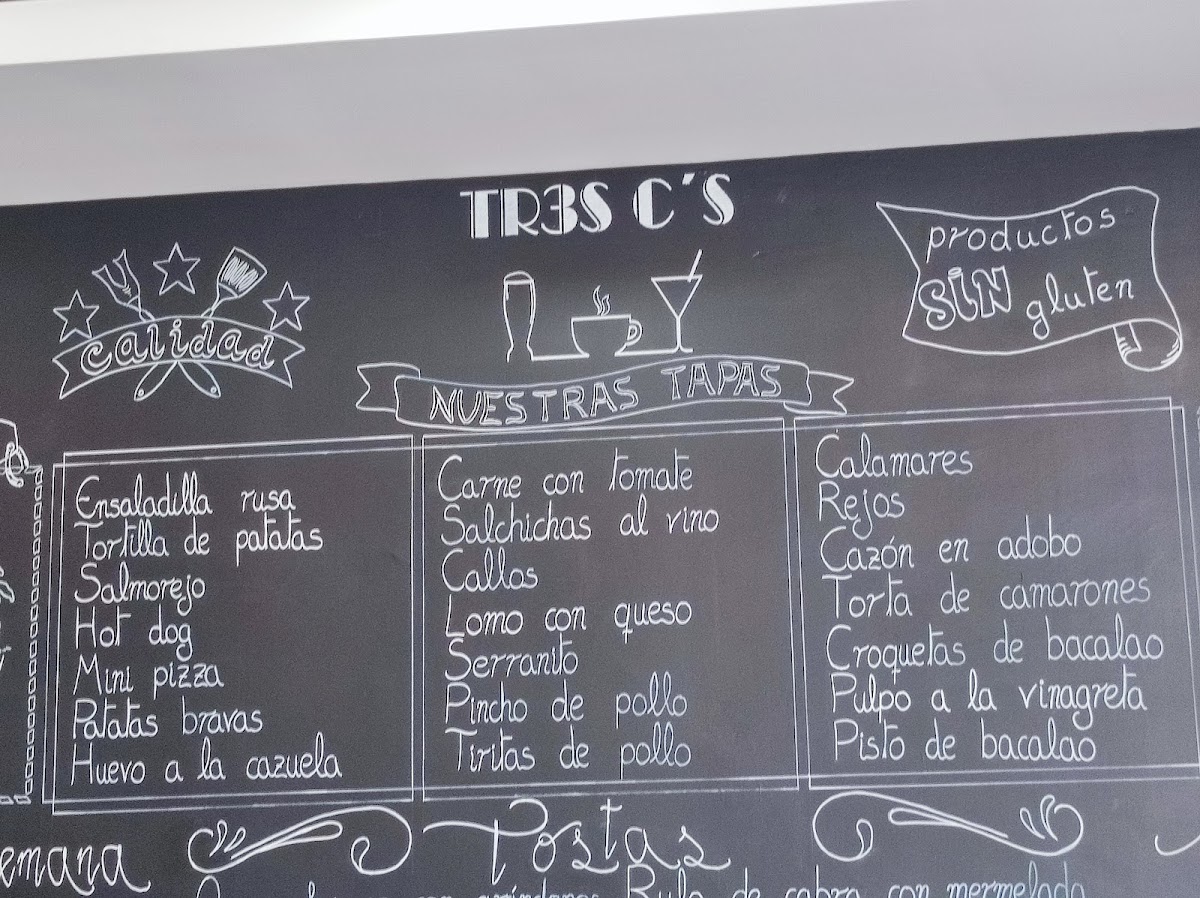 TR3S C'S
calidad
productos
SIN gluten
NUESTRAS TAPAS
Ensaladilla rusa
Tortilla de patatas
Salmorejo
Hot dog
Mini pizza
Patatas bravas
Huevo a la cazuela
Carne con tomate
Salchichas al vino
Callos
Lomo con queso
Serranito
Pincho de pollo
Tiritas de pollo
Calamares
Rejos
Cazón en adobo
Torta de camarones
Croquetas de bacalao
Pulpo a la vinagreta
Pisto de bacalao
emana
Tostas
con Rulo de cabra con mermelada